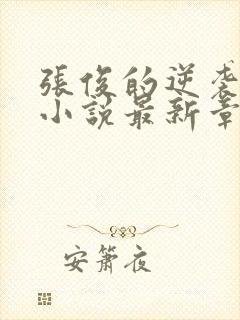 張俊的逆袭
小説最新章
安簫夜